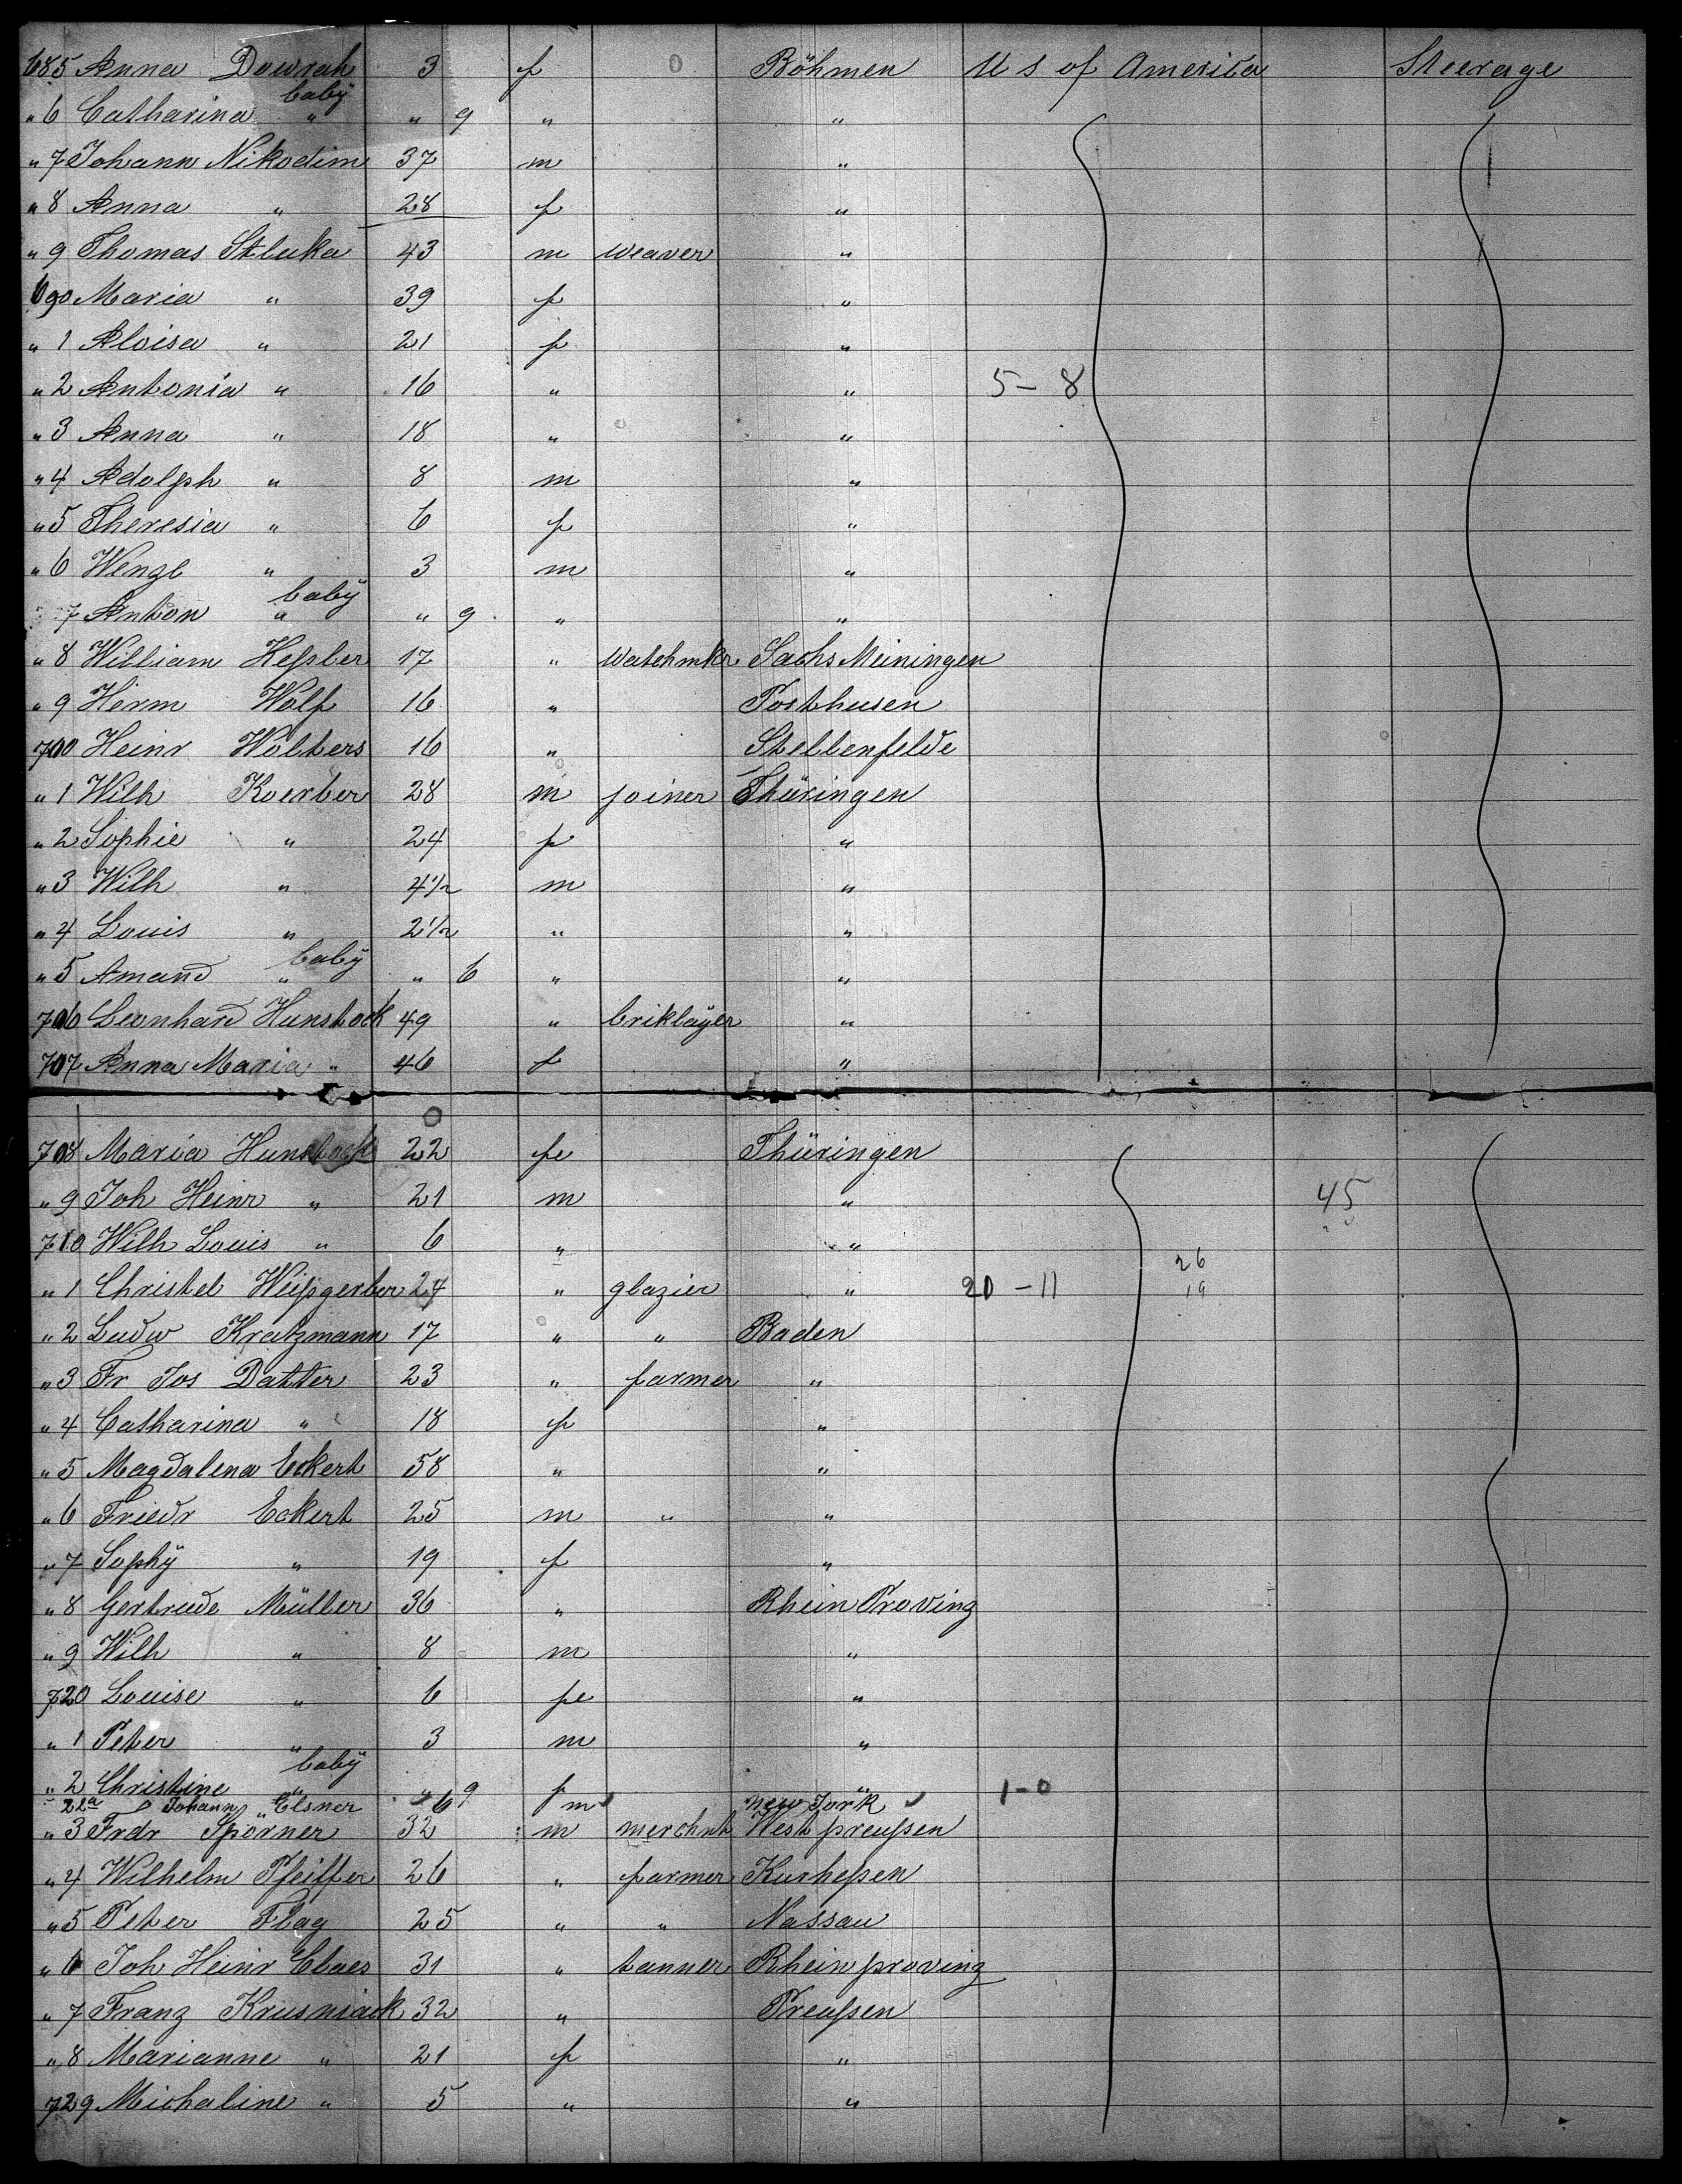 685 Anna Dowrah 3 f Böhmen U S of America Steerage
" 6 Catharina " baby " 9 " "
" 7 Johann Nikodim 37 m "
" 8 Anna " 28 f "
" 9 Thomas Stluka 43 m weaver "
690 Maria " 39 f "
" 1 Aloisa " 21 f "
" 2 Antonia " 16 " " 5-8
" 3 Anna " 18 " "
" 4 Adolph " 8 m "
" 5 Theresia " 6 f "
" 6 Wenzl " 3 m "
" 7 Anton " baby " 9 " "
" 8 William Heſsler 17 " Watchmkr Sachs Meiningen
" 9 Herm Wolf 16 " Posthusen
700 Heinr Wolters 16 " Stellenfelde
" 1 Wilh Koerber 28 m joiner Thüringen
" 2 Sophie " 24 f "
" 3 Wilh " 4½ m "
" 4 Louis " 2½ " "
" 5 Amand " baby " 6 " "
706 Leonhard Hunstock 49 " briklayer "
707 Anna Maria " 46 f "
708 Maria Hunstock 22 fe Thüringen
" 9 Joh Heinr " 21 m " 45
710 Wilh Louis " 6 " "
" 1 Christel Weiſsgerber 24 " glazier " 20-11 26 19
" 2 Ludw Kratzmann 17 " " Baden
" 3 Fr Jos Datter 23 " farmer "
" 4 Catharina " 18 f "
" 5 Magdalena Eckert 58 " "
" 6 Friedr Eckert 25 m " "
" 7 Sophÿ " 19 f "
" 8 Gertrude Müller 36 " Rhein Provinz
" 9 Wilh " 8 m "
720 Louise " 6 fe "
" 1 Peter " 3 m "
" 2 Christine " baby " 9 f " 1-0
22a Johann Elsner 6 m new York
" 3 Frdr Sporner 32 m merchnt West preuſsen
" 4 Wilhelm Pfeiffer 26 " farmer Kurheſsen
" 5 Peter Flag 25 " " Nassau
" 6 Joh Heinr Claes 31 " tanner Rheinprovinz
" 7 Franz Krusniack 32 " Preuſsen
" 8 Marianne " 21 f "
729 Michaline " 5 " "